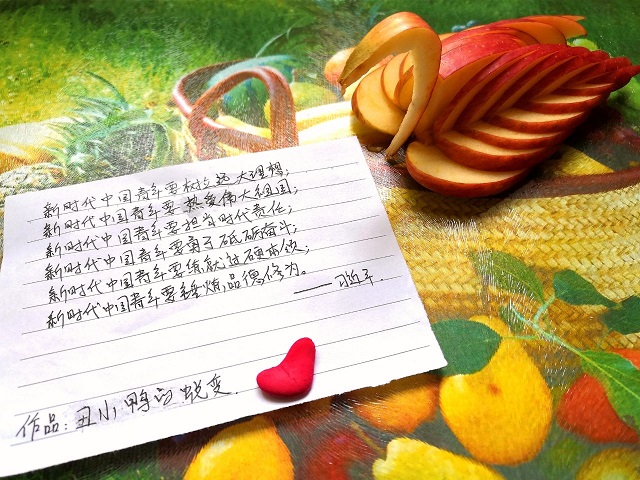 新时代中国青年要树立远大理想；
新时代中国青年要热爱伟大祖国；
新时代中国青年要担当时代责任；
新时代中国青年要勇于砥砺奋斗；
新时代中国青年要练就过硬本领；
新时代中国青年要锤炼品德修为。
——习近平
作品：丑小鸭的蜕变